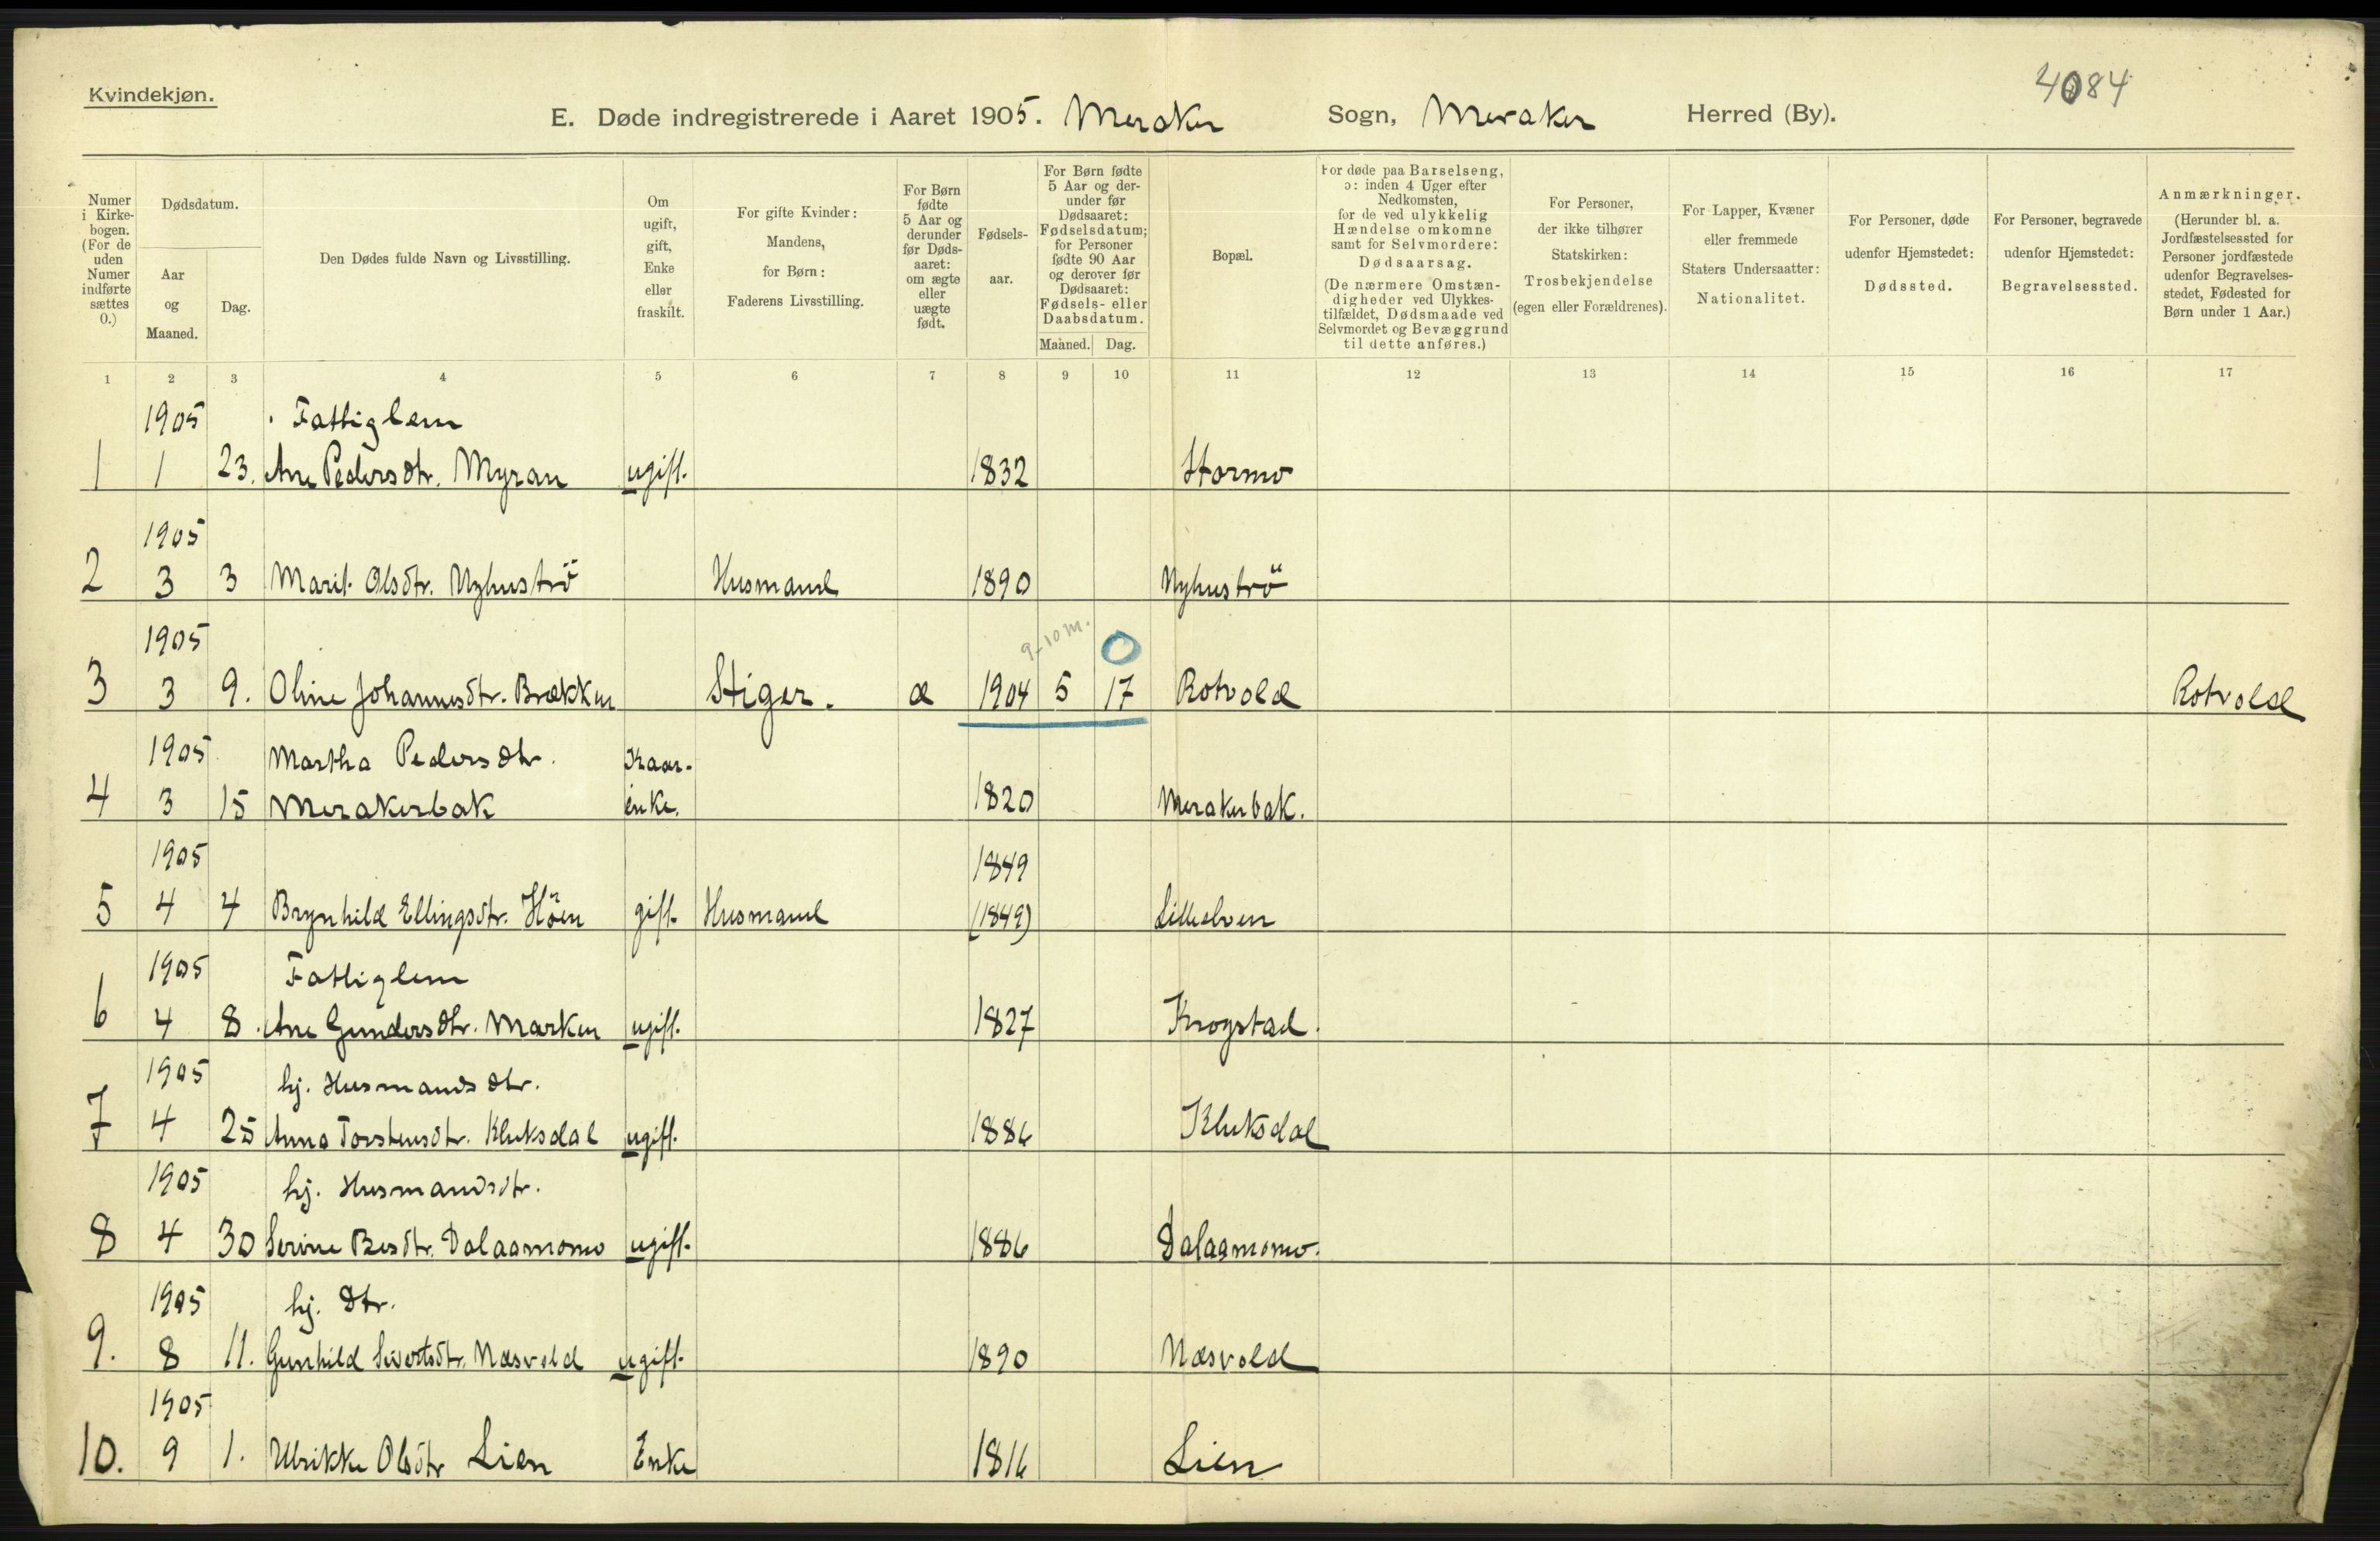 Kvindekjøn.
4084
E. Døde indregistrerede i Aaret 1905. Meraker Sogn, Meraker Herred (By).
Numer i Kirkebogen. (For de uden Numer indførte sættes 0.)
Dødsdatum.
Aar og Maaned.
Dag.
Den Dødes fulde Navn og Livsstilling.
Om ugift, gift, Enke eller fraskilt.
For gifte Kvinder: Mandens, for Børn: Faderens Livsstilling.
For Børn fødte 5 Aar og derunder før Dødsaaret: om ægte eller uægte født.
Fødselsaar.
For Børn fødte 5 Aar og derunder før Dødsaaret: Fødselsdatum; for Personer fødte 90 Aar og derover før Dødsaaret: Fødsels- eller Daabsdatum.
Maaned. Dag.
Bopæl.
For døde paa Barselseng, ɔ: inden 4 Uger efter Nedkomsten, for de ved ulykkelig Hændelse omkomne samt for Selvmordere: Dødsaarsag. (De nærmere Omstændigheder ved Ulykkestilfældet, Dødsmaade ved Selvmordet og Bevæggrund til dette anføres.)
For Personer, der ikke tilhører Statskirken: Trosbekjendelse (egen eller Forældrenes).
For Lapper, Kvæner eller fremmede Staters Undersaatter: Nationalitet.
For Personer, døde udenfor Hjemstedet: Dødssted.
For Personer, begravede udenfor Hjemstedet: Begravelsessted.
Anmærkninger. (Herunder bl. a. Jordfæstelsessted for Personer jordfæstede udenfor Begravelsesstedet, Fødested for Børn under 1 Aar.)
1 2 3 4 5 6 7 8 9 10 11 12 13 14 15 16 17
1905 Fattiglem
1 1 23. Ane Pedersdtr. Myran ugift. 1832 Stormo
1905
2 3 3 Marit Olsdtr. Nyhuströ Husmand 1890 Nyhuströ
1905 9-10 m. 0
3 3 9. Oline Johannesdtr. Brækken Stiger. æ 1904 5 17 Rotvold Rotvold
1905 Martha Pedersdtr. Kaar-
4 3 15 Merakerbak enke. 1820 Merakerbak.
1905 1849
5 4 4 Brynhild Ellingsdtr. Höen gift Husmand (1849) Lilleelven
1905 Fattiglem
6 4 8. Ane Gundersdtr. Marken ugift. 1827 Krogstad.
1905 hj. Husmandsdtr.
7 4 25 Anna Torstensdtr. Kluksdal ugift. 1886 Kluksdal
1905 hj. Husmandsdtr.
8 4 30 Serine Besdtr. Dalaamomo ugift. 1886 Dalaamomo.
1905 hj. dtr.
9. 8 11. Gunhild Sivertsdtr. Næsvold ugift. 1890 Næsvold
1905
10. 9 1. Ulrikke Olsdtr Lien Enke 1816 Lien